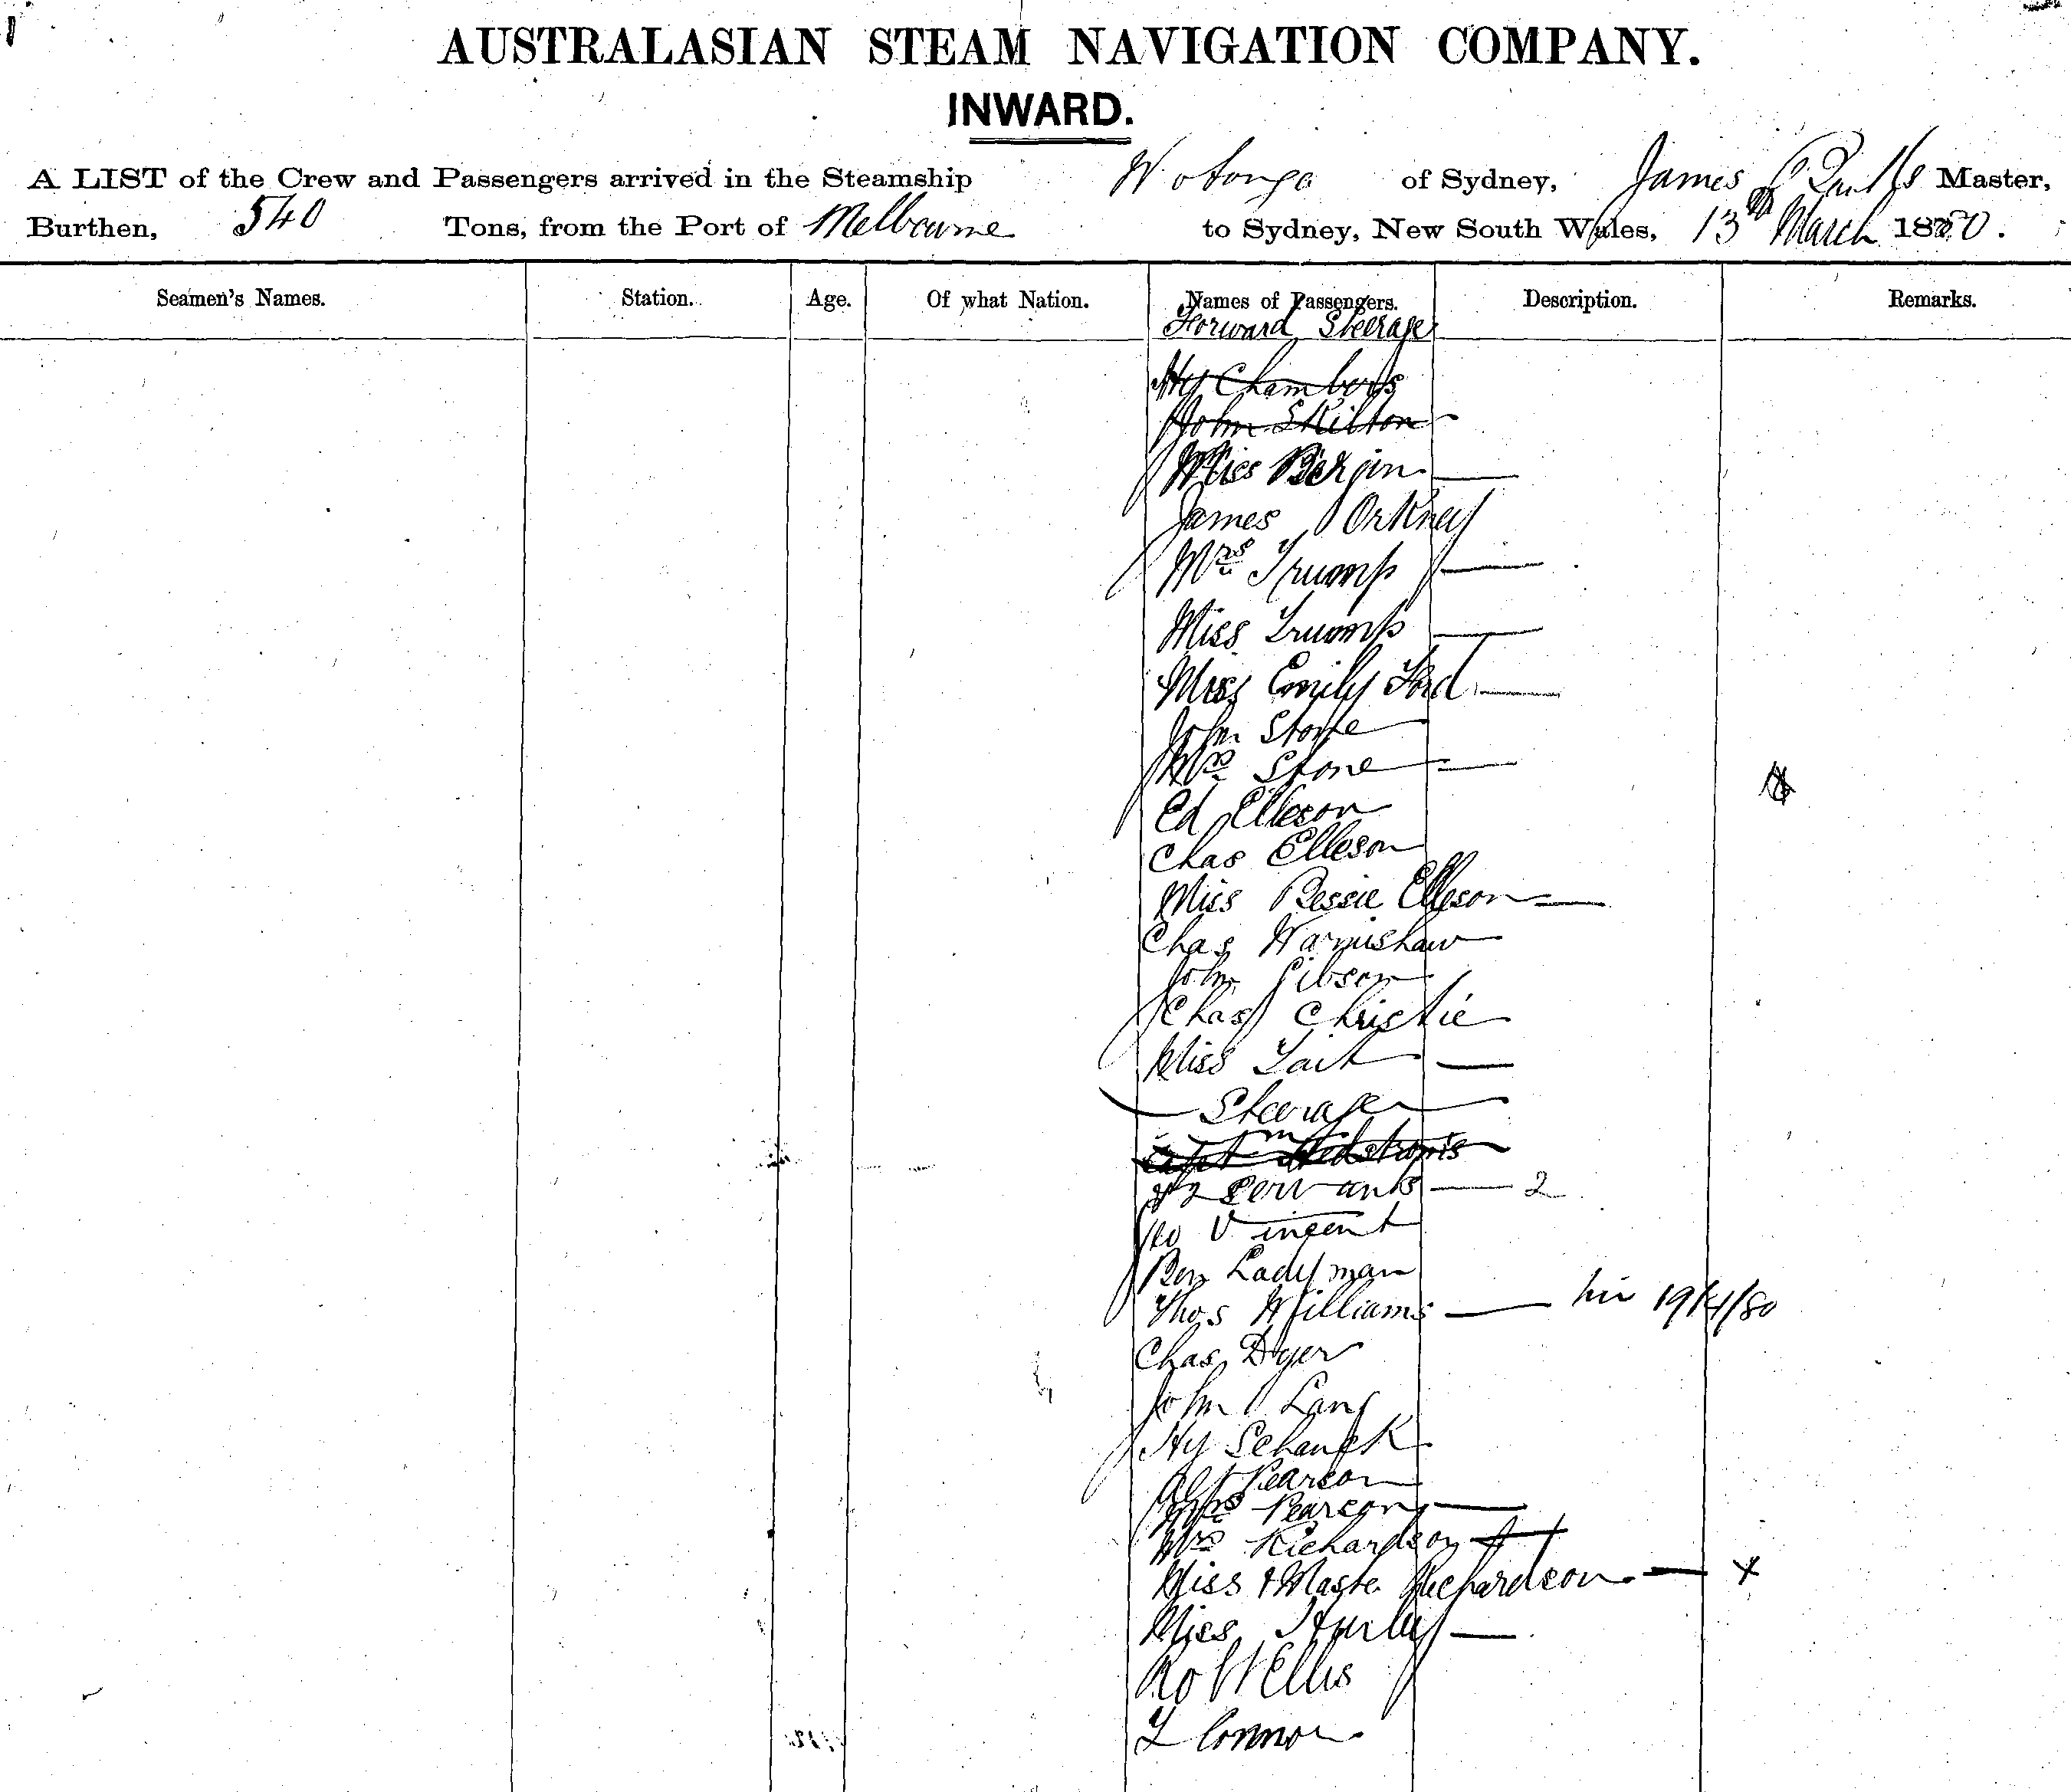 AUSTRALASIAN STEAM NAVIGATION COMPANY.
INWARD.
A LIST of the Crew and Passengers arrived in the Steamship Wotonga of Sydney, James Master,
Burthen, 540 Tons, from the Port of Melbourne to Sydney, New South Wales, 13th March 1880.
Seamen's Names. Station. Age. Of what Nation. Names of Passengers. Description. Remarks.
Forward Steerage
Hy Chambers
John Skilton
Miss Bergin
James Orkney
Mrs Trump
Miss Trump
Miss Emily Ford
John Stone
Mrs Stone
Ed Elleson
Chas Elleson
Miss Bessie Elleson
Chas Warmishaw
John Gibson
Chas Christie
Miss Tait
Steerage
Capt
& 2 Servants — 2
Geo Vincent
Ben Ladyman
Thos Williams — 19/4/80
Chas Dyer
John Lang
Hy Schanck
Alf Pearson
Mrs Pearson
Mrs Richardson
Miss & Master Richardson — x
Miss Hurley
Ro W Ellis
T Connor